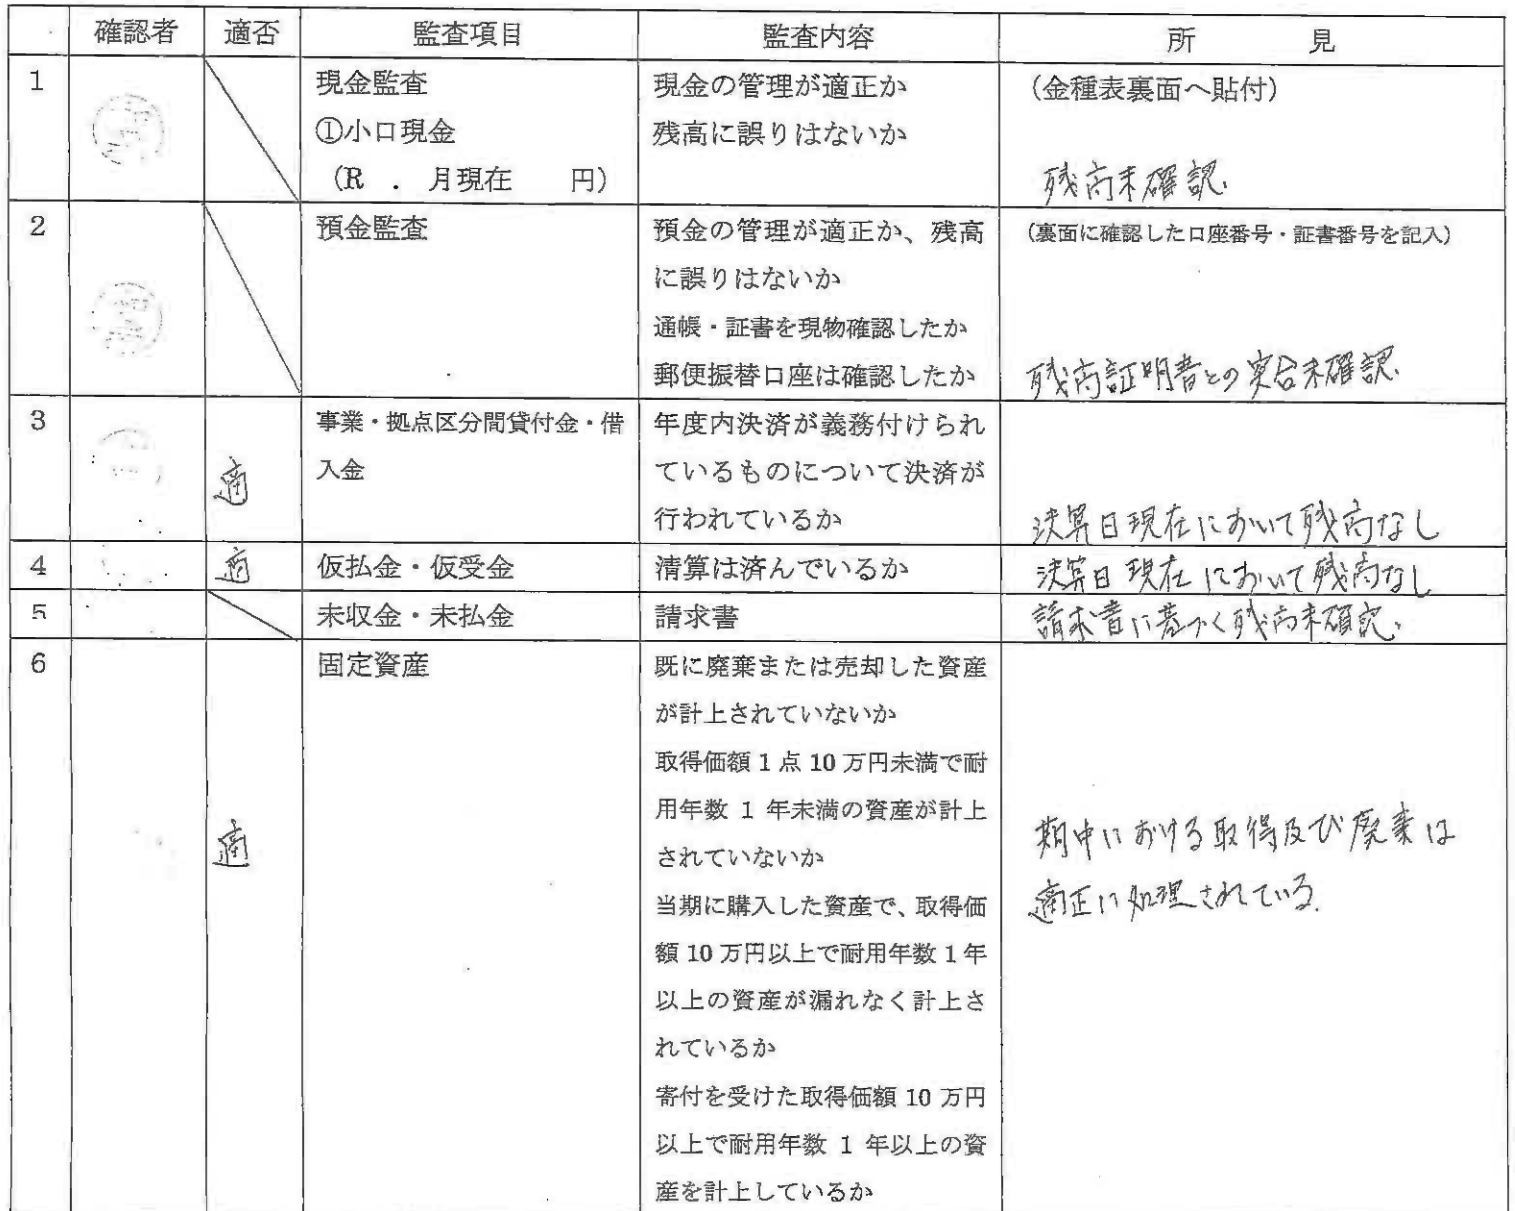 確認者 適否 監査項目 監査内容 所 見
1
現金監査
①小口現金
(R . 月現在 円)
現金の管理が適正か
残高に誤りはないか
(金種表裏面へ貼付)
残高未確認.
2
預金監査
預金の管理が適正か、残高
に誤りはないか
通帳・証書を現物確認したか
郵便振替口座は確認したか
(裏面に確認した口座番号・証書番号を記入)
残高証明書との突合未確認.
3
適
事業・拠点区分間貸付金・借
入金
年度内決済が義務付けられ
ているものについて決済が
行われているか
決算日現在において残高なし
4 適 仮払金・仮受金 清算は済んでいるか 決算日現在において残高なし
5 未収金・未払金 請求書 請求書に基づく残高未確認.
6
適
固定資産
既に廃棄または売却した資産
が計上されていないか
取得価額 1 点 10 万円未満で耐
用年数 1 年未満の資産が計上
されていないか
当期に購入した資産で、取得価
額 10 万円以上で耐用年数 1 年
以上の資産が漏れなく計上さ
れているか
寄付を受けた取得価額 10 万円
以上で耐用年数 1 年以上の資
産を計上しているか
期中における取得及び廃棄は
適正に処理されている.